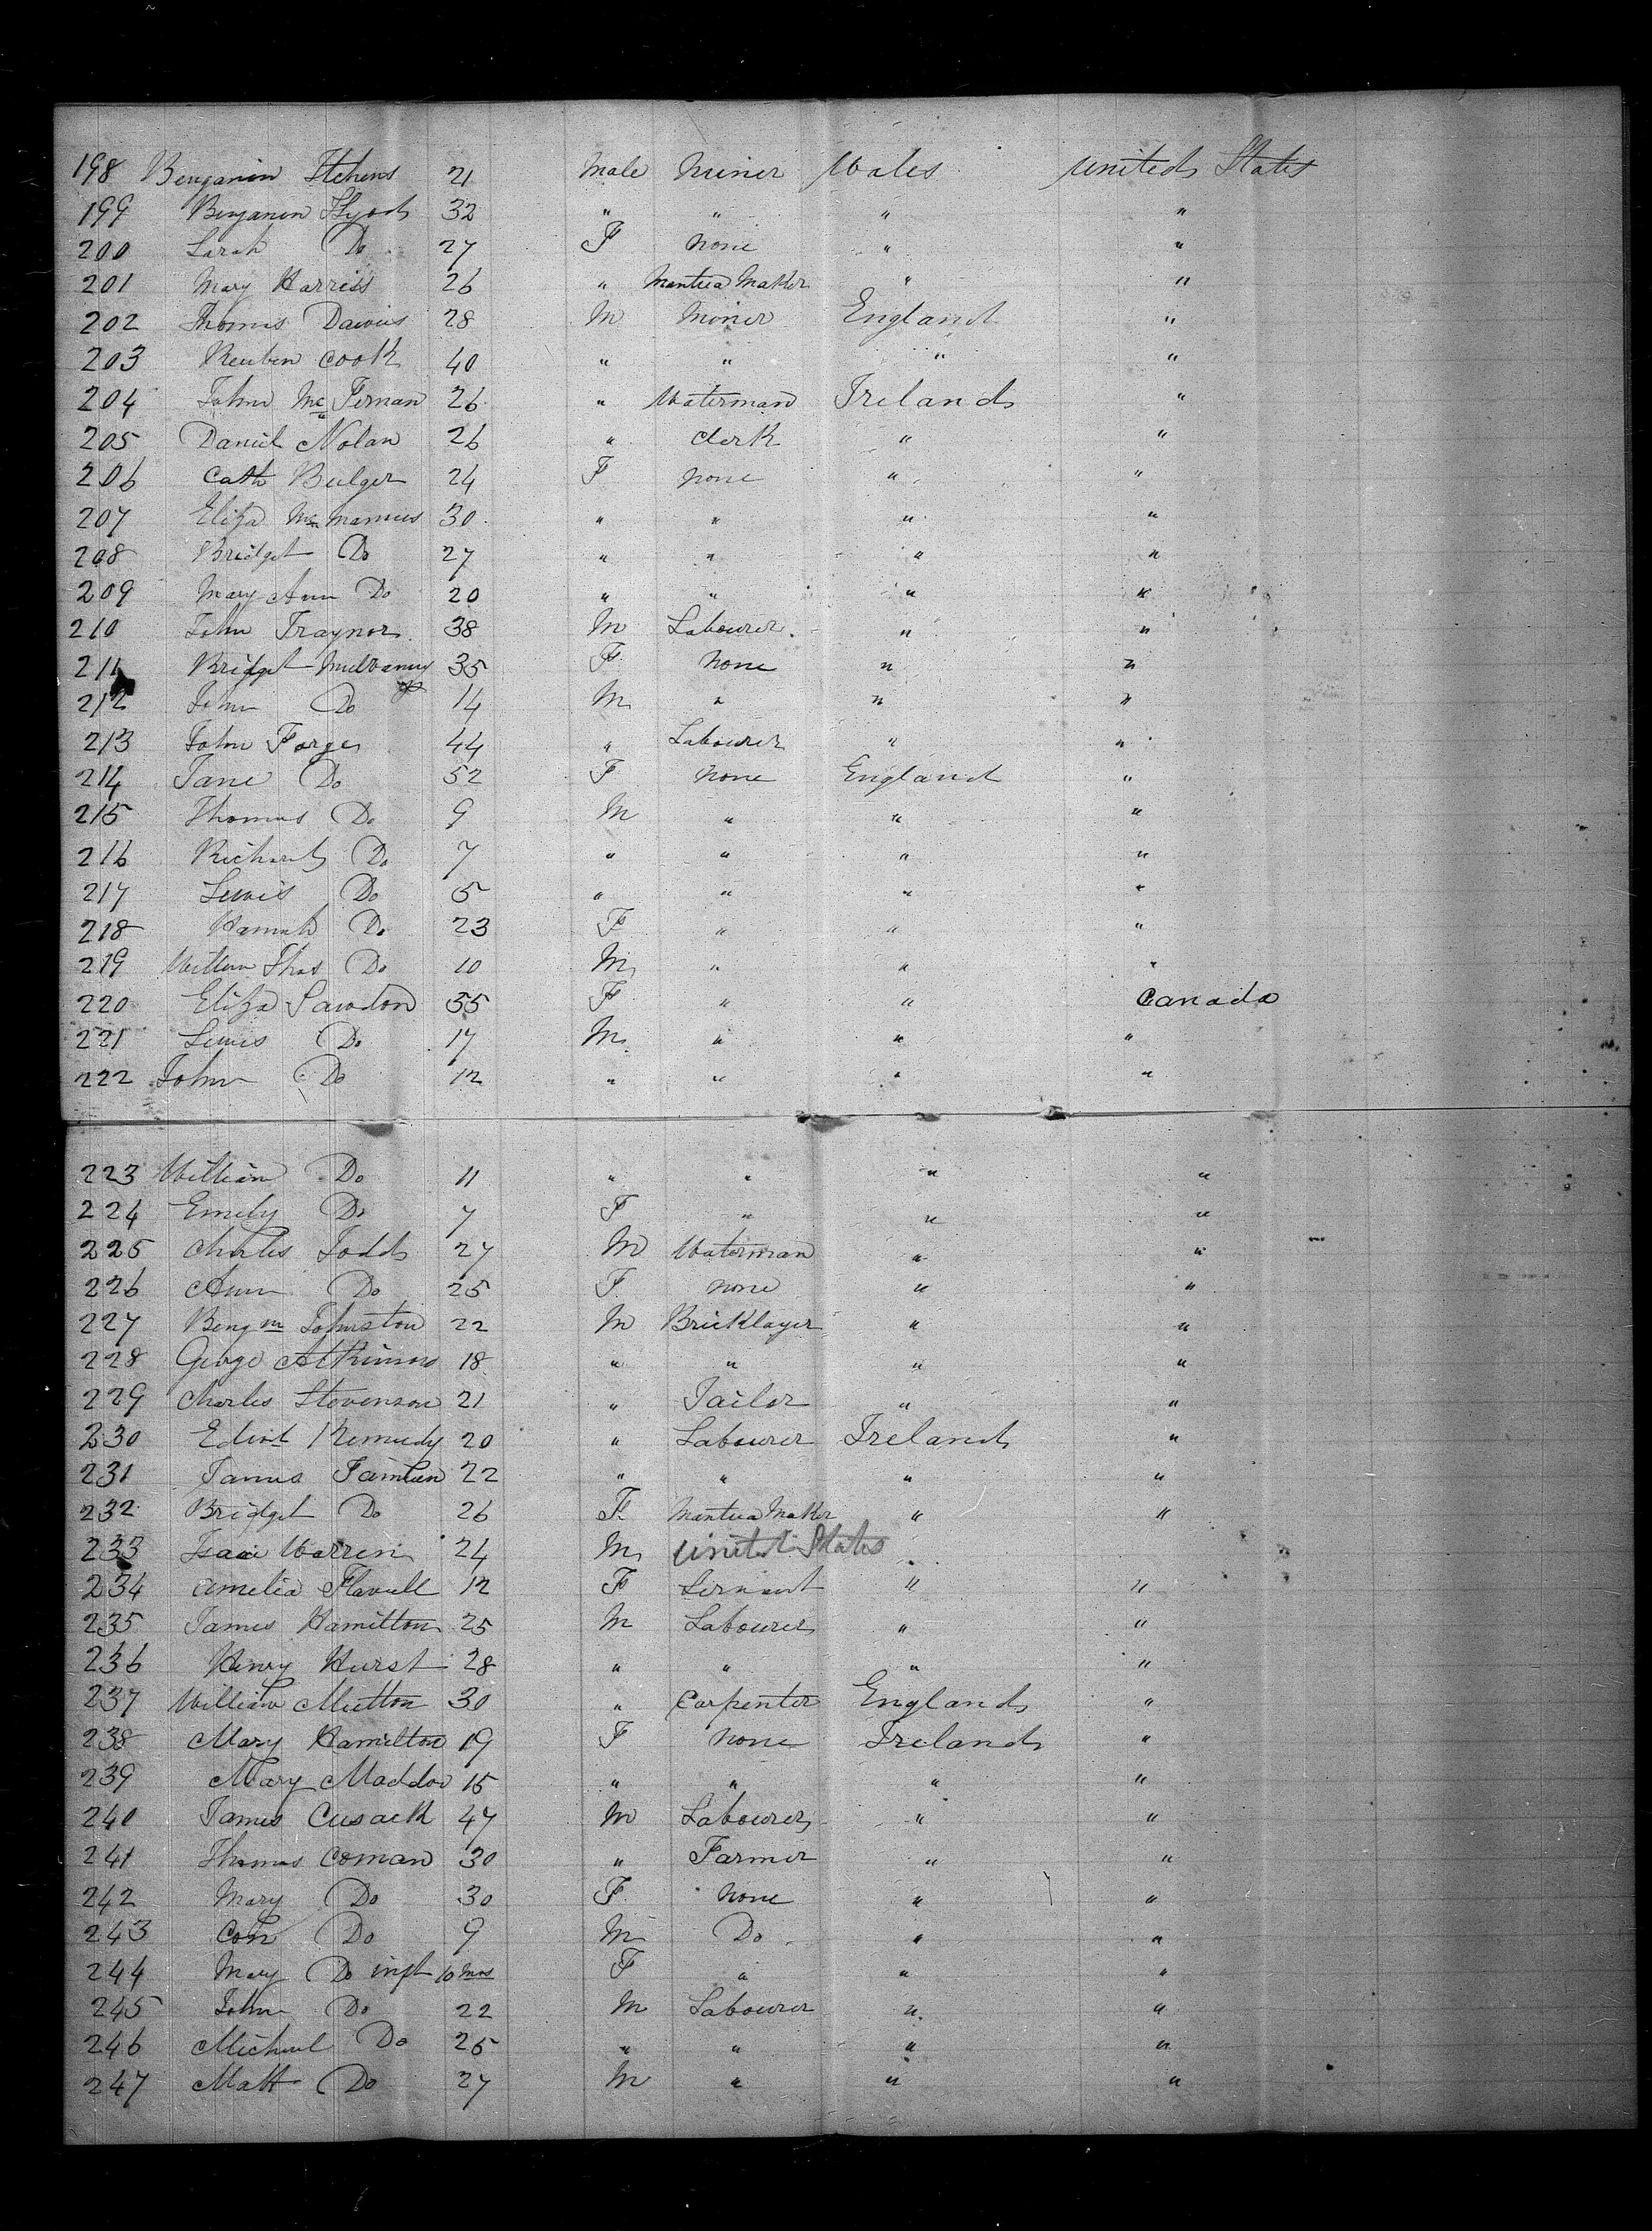 198 Benganin Stehens 21 Male Miner Wales United States
199 Benganin 32 " " " "
200 Sarah Do 27 F None " "
201 Mary Harriss 26 " Mantua Maker " "
202 Thomas Davies 28 M Miner England "
203 Reuben Cook 40 " " " "
204 John Mc Fernan 26 " Waterman Ireland "
205 Daniel Nolan 26 " Clerk " "
206 Cath Bulger 24 F None " "
207 Eliza McManus 30 " " " "
208 Bridget Do 27 " " " "
209 Mary Ann Do 20 " " " "
210 John Traynor 38 M Labourer " "
211 Bridget Mulvaney 35 F None " "
212 John Do 14 M " " "
213 John Forge 44 " Labourer " "
214 Jane Do 52 F None England "
215 Thomas Do 9 M " " "
216 Richard Do 7 " " " "
217 Lewis Do 5 " " " "
218 Hannah Do 23 F " " "
219 William Thos Do 10 M " " "
220 Eliza Sawdon 55 F " " Canada
221 Lewis Do 17 M " " "
222 John Do 12 " " " "
223 William Do 11 " " " "
224 Emily Do 7 F " " "
225 Charles Todd 27 M Waterman " "
226 Ann Do 25 F None " "
227 Bengm Johnston 22 M Bricklayer " "
228 George Atkinson 18 " " " "
229 Charles Stevenson 21 " Tailor " "
230 Kennedy 20 " Labourer Ireland "
231 James 22 " " " "
232 Bridget Do 26 F Mantua Maker " "
233 Isaac Warren 24 M United States "
234 Amelia Flavell 12 F Servant " "
235 James Hamilton 25 M Labourer " "
236 Henry Hurst 28 " " " "
237 William Mutton 30 " Carpenter England "
238 Mary Hamilton 19 F None Ireland "
239 Mary Maddox 15 " " " "
240 James Cusack 47 M Labourer " "
241 Thomas Coman 30 " Farmer " "
242 Mary Do 30 F None " "
243 Con Do 9 M Do " "
244 Mary Do inft 10 mos F " " "
245 John Do 22 M Labourer " "
246 Michael Do 25 " " " "
247 Matt Do 27 M " " "